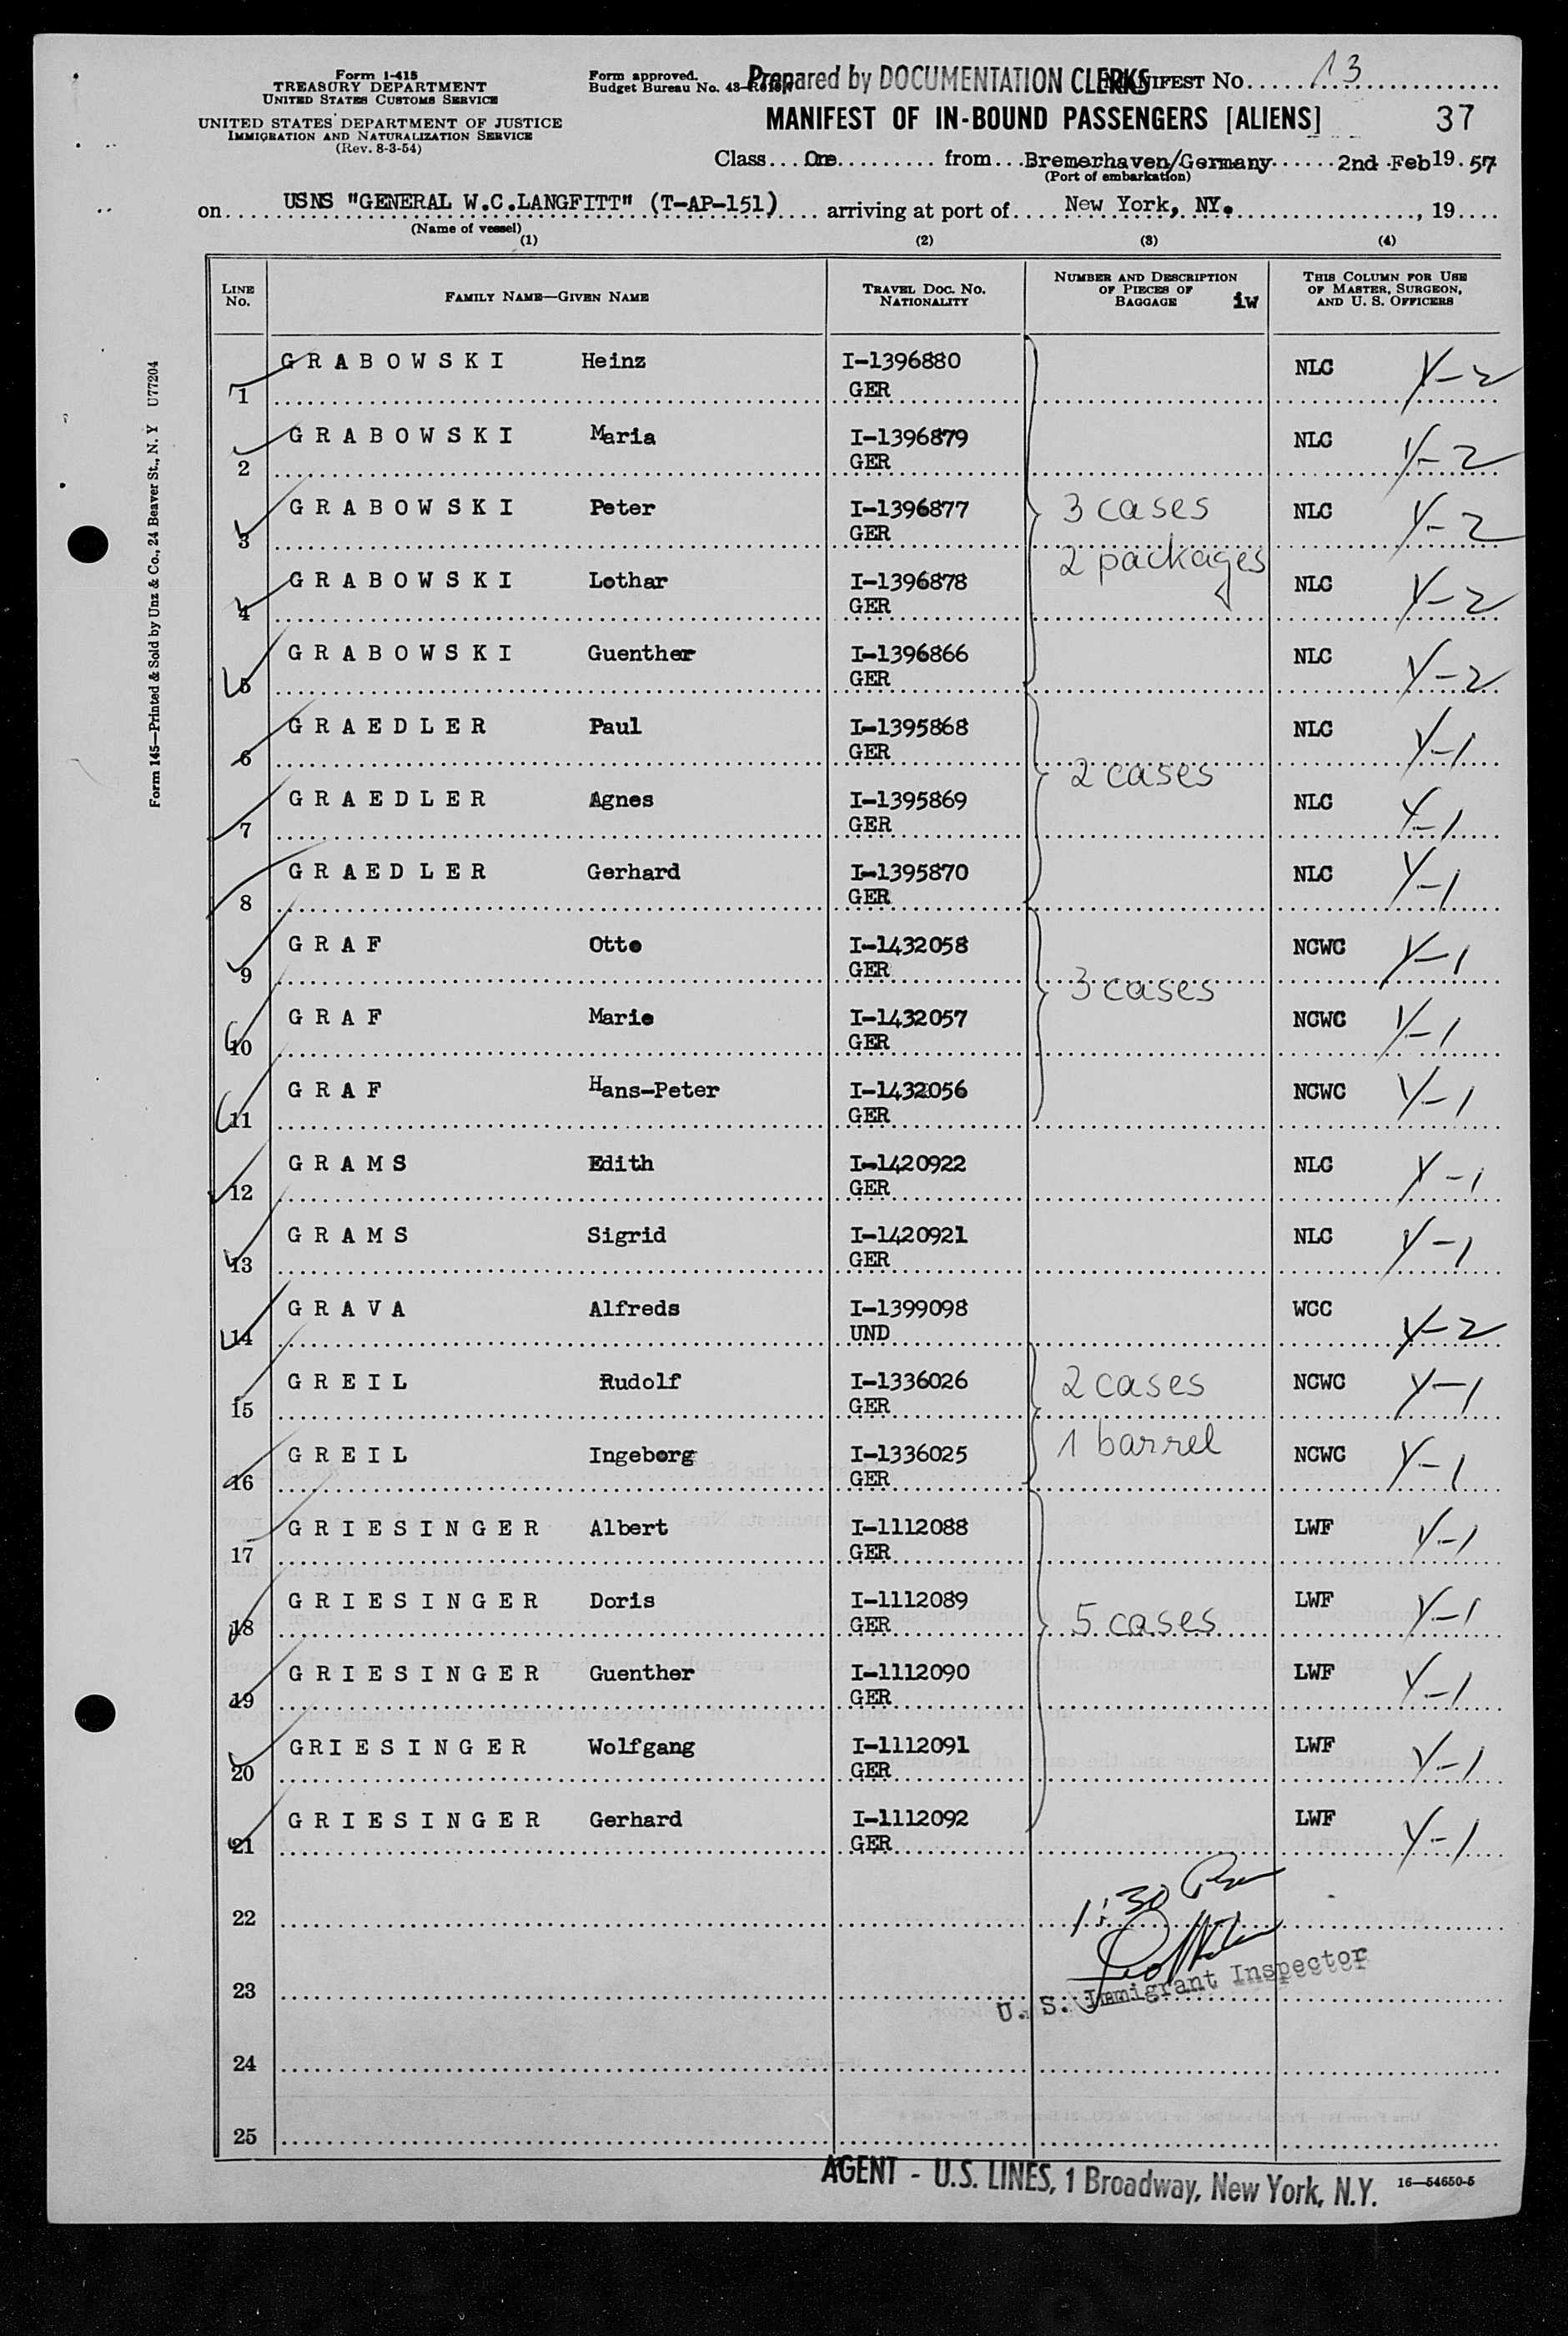 Form I-415
TREASURY DEPARTMENT
UNITED STATES CUSTOMS SERVICE
UNITED STATES DEPARTMENT OF JUSTICE
IMMIGRATION AND NATURALIZATION SERVICE
(Rev. 8-3-54)
Form approved.
Budget Bureau No. 43-
Prepared by DOCUMENTATION CLERKS
MANIFEST No. 13
MANIFEST OF IN-BOUND PASSENGERS [ALIENS] 37
Class One from Bremerhaven/Germany 2nd Feb 19 57
(Port of embarkation)
on USNS "GENERAL W.C.LANGFITT" (T-AP-151) arriving at port of New York, NY. , 19
(Name of vessel)
(1) (2) (3) (4)
LINE No. FAMILY NAME—GIVEN NAME TRAVEL DOC. NO. NATIONALITY NUMBER AND DESCRIPTION OF PIECES OF BAGGAGE iw THIS COLUMN FOR USE OF MASTER, SURGEON, AND U. S. OFFICERS
1 GRABOWSKI Heinz I-1396880 GER NLC Y-2
2 GRABOWSKI Maria I-1396879 GER NLC Y-2
3 GRABOWSKI Peter I-1396877 GER 3 cases NLC Y-2
2 packages
4 GRABOWSKI Lothar I-1396878 GER NLC Y-2
5 GRABOWSKI Guenther I-1396866 GER NLC Y-2
6 GRAEDLER Paul I-1395868 GER NLC Y-1
2 cases
7 GRAEDLER Agnes I-1395869 GER NLC Y-1
8 GRAEDLER Gerhard I-1395870 GER NLC Y-1
9 GRAF Otto I-1432058 GER NCWC Y-1
3 cases
10 GRAF Marie I-1432057 GER NCWC Y-1
11 GRAF Hans-Peter I-1432056 GER NCWC Y-1
12 GRAMS Edith I-1420922 GER NLC Y-1
13 GRAMS Sigrid I-1420921 GER NLC Y-1
14 GRAVA Alfreds I-1399098 UND WCC Y-2
15 GREIL Rudolf I-1336026 GER 2 cases NCWC Y-1
16 GREIL Ingeborg I-1336025 GER 1 barrel NCWC Y-1
17 GRIESINGER Albert I-1112088 GER LWF Y-1
18 GRIESINGER Doris I-1112089 GER 5 cases LWF Y-1
19 GRIESINGER Guenther I-1112090 GER LWF Y-1
20 GRIESINGER Wolfgang I-1112091 GER LWF Y-1
21 GRIESINGER Gerhard I-1112092 GER LWF Y-1
22 1:30 Pm
23
U. S. Immigrant Inspector
24
25
AGENT - U.S. LINES, 1 Broadway, New York, N.Y. 16—54650-5
Form 145—Printed & Sold by Unz & Co., 24 Beaver St., N. Y U77204